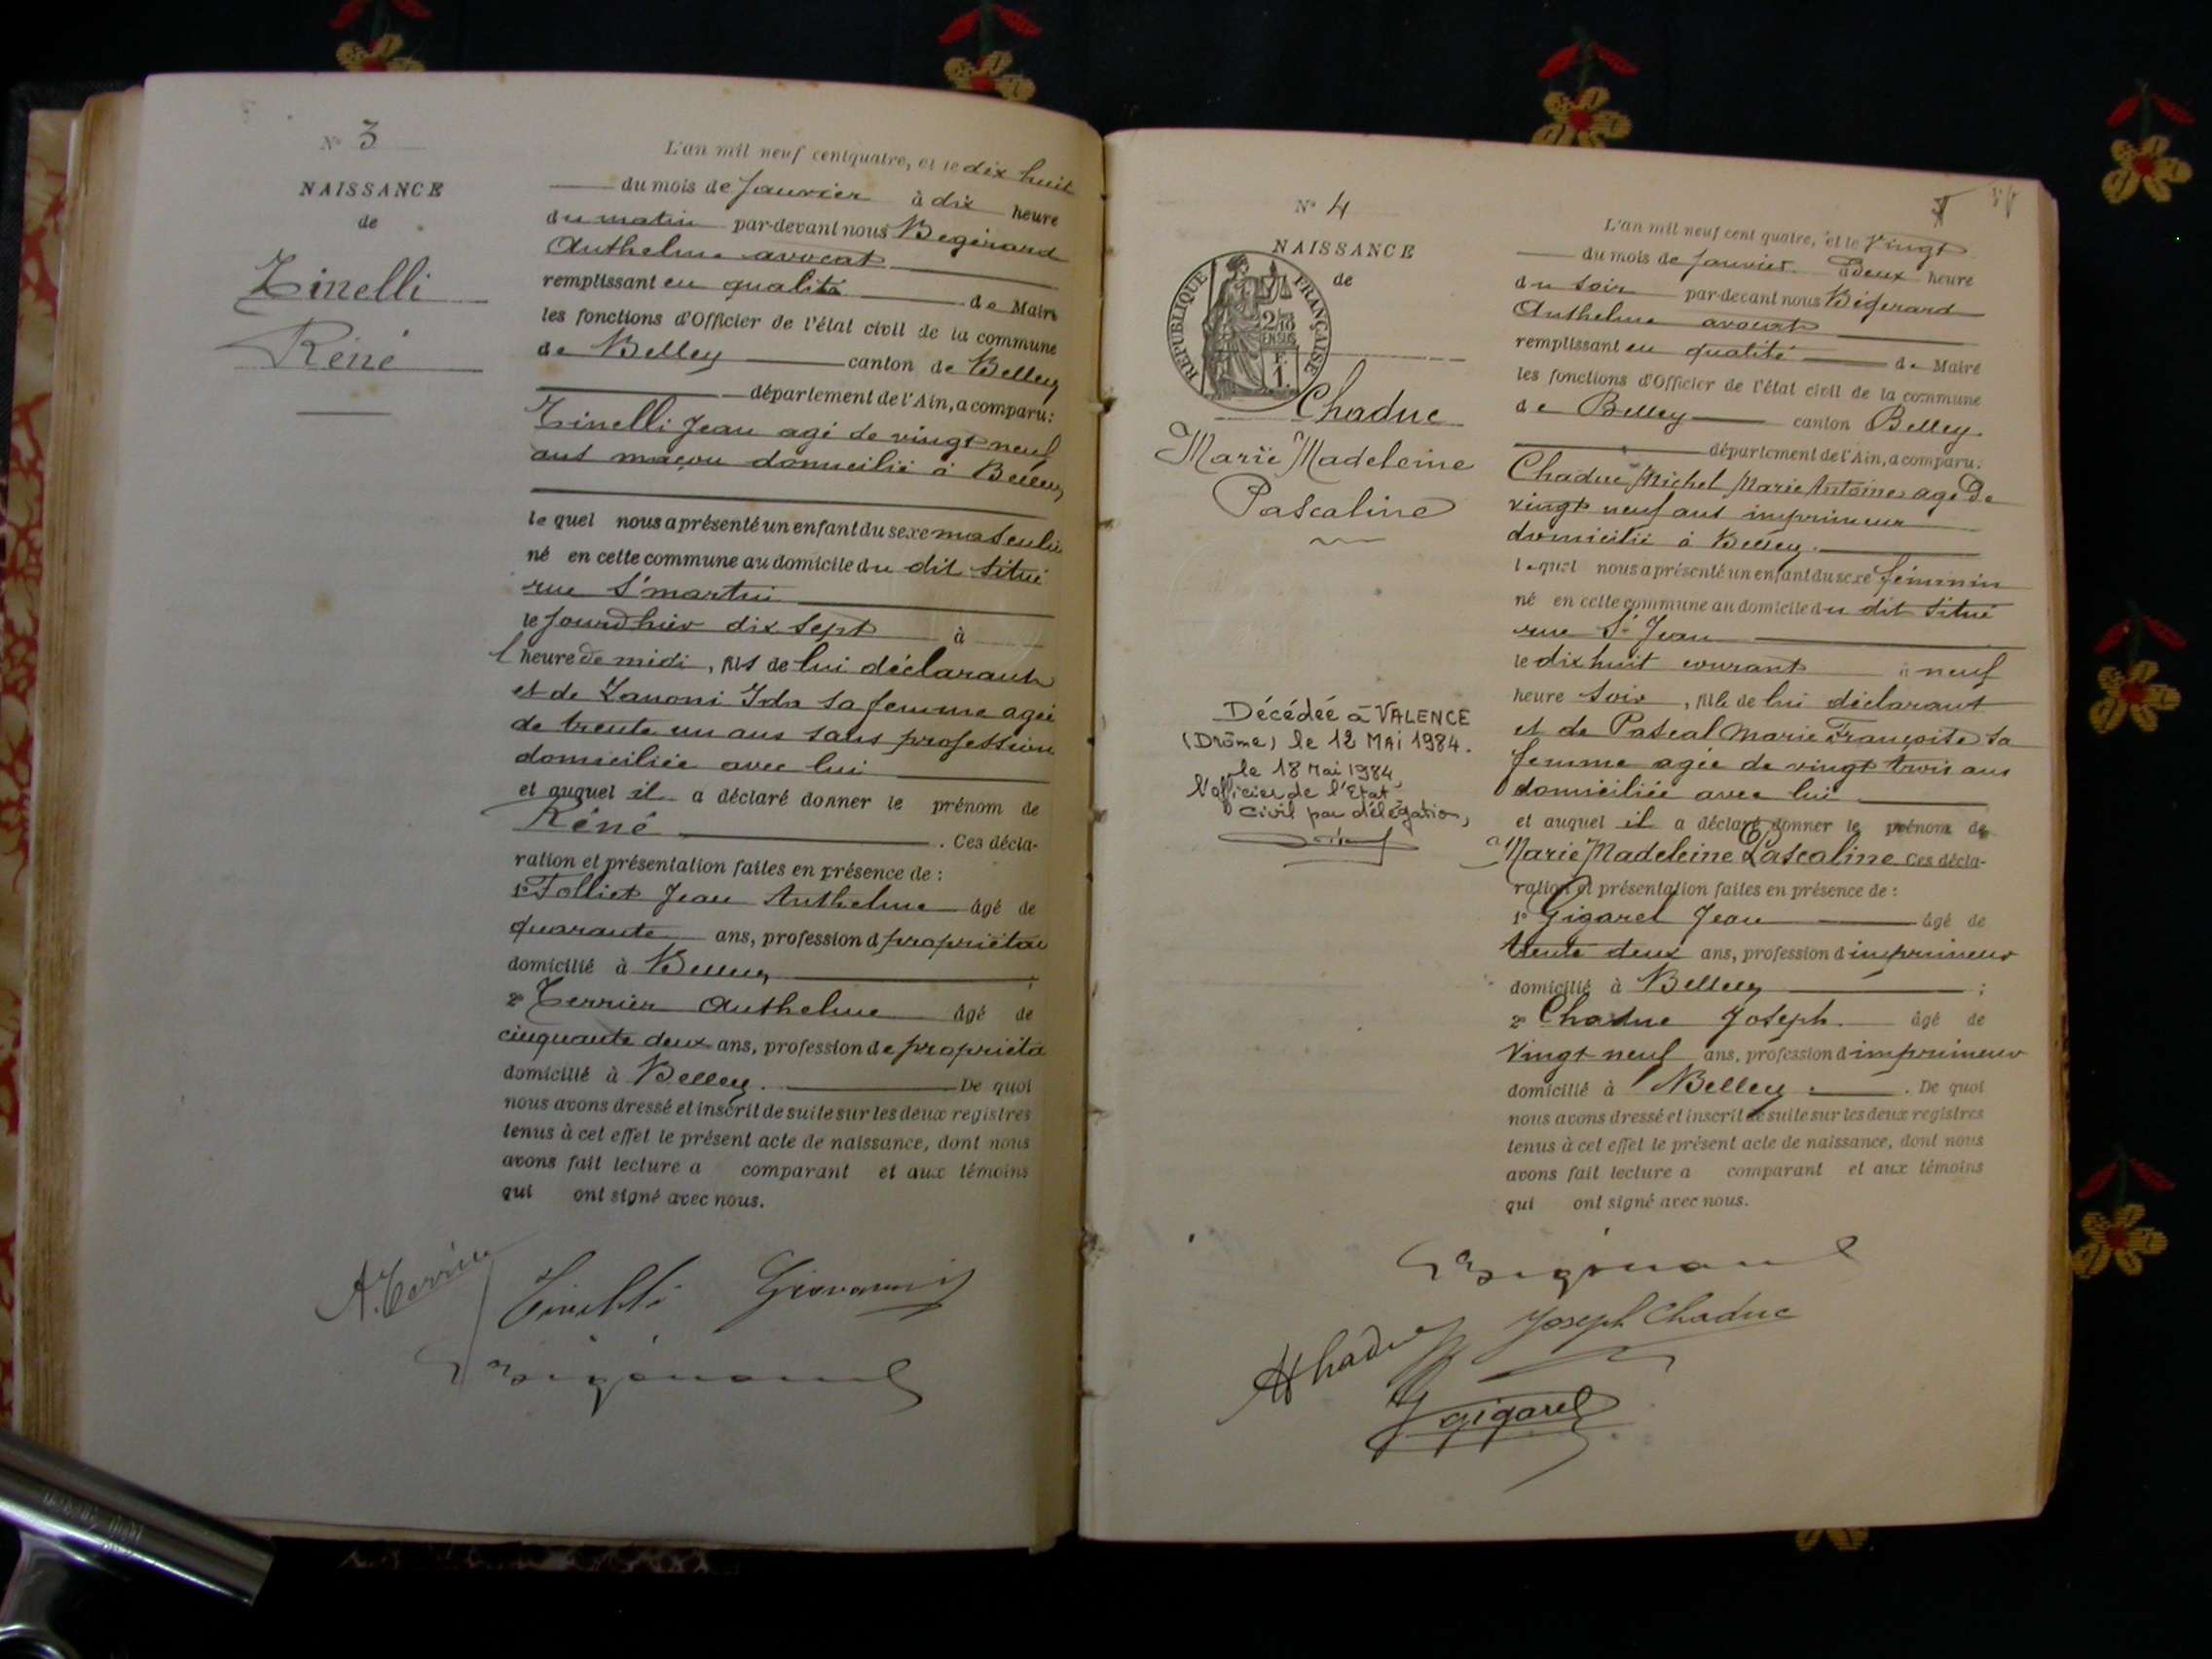 N° 3
NAISSANCE
de
Zinelli
Réné
L'an mil neuf centquatre, et le dix huit
du mois de Janvier à dix heure
du matin par-devant nous Bégérard
Anthelme avocat
remplissant en qualité de Maire
les fonctions d'Officier de l'état civil de la commune
de Belley canton de Belley
département de l'Ain, a comparu:
Zinelli Jean agé de vingt neuf
ans maçon domicilié à Belley
lequel nous a présenté un enfant du sexe masculin
né en cette commune au domicile du dit situé
rue St martin
le jourd'hier dix sept à
l heure de midi, fils de lui déclarant
et de Zanoni Ida sa femme agée
de trente un ans sans profession
domiciliée avec lui
et auquel il a déclaré donner le prénom de
Réné . Ces décla-
ration et présentation faites en présence de :
1° Folliet Jean Anthelme âgé de
quarante ans, profession d propriétai
domicilié à Belley ;
2° Terrier Anthelme âgé de
cinquante deux ans, profession de propriéta
domicilié à Belley. De quoi
nous avons dressé et inscrit de suite sur les deux registres
tenus à cet effet le présent acte de naissance, dont nous
avons fait lecture a comparant et aux témoins
qui ont signé avec nous.
A. Terrier
Zinelli Giovanni
N° 4
NAISSANCE
de
RÉPUBLIQUE FRANÇAISE
2/10
EN SUS
F.
1.
Chaduc
Marie Madeleine
Pascaline
Décédée à VALENCE
(Drôme) le 12 MAI 1984.
le 18 Mai 1984
l'officier de l'Etat
Civil par délégation,
L'an mil neuf cent quatre, et le Vingt
du mois de Janvier à deux heure
du soir par-devant nous Bégerard
Anthelme avocat
remplissant en qualité de Maire
les fonctions d'Officier de l'état civil de la commune
de Belley canton Belley
département de l'Ain, a comparu.
Chaduc Michel Marie Antoine agé de
vingt neuf ans imprimeur
domicilié à Belley.
lequel nous a présenté un enfant du sexe féminin
né en cette commune au domicile du dit situé
rue St Jean
le dix huit courant à neuf
heure soir, fille de lui déclarant
et de Pascal Marie Françoise sa
femme agée de vingt trois ans
domiciliée avec lui
et auquel il a déclaré donner le prénom de
Marie Madeleine Pascaline Ces décla-
ration et présentation faites en présence de :
1° Gigarel Jean âgé de
trente deux ans, profession d imprimeur
domicilié à Belley ;
2° Chaduc Joseph âgé de
Vingt neuf ans, profession d imprimeur
domicilié à Belley . De quoi
nous avons dressé et inscrit de suite sur les deux registres
tenus à cet effet le présent acte de naissance, dont nous
avons fait lecture a comparant et aux témoins
qui ont signé avec nous.
Joseph Chaduc
gigarel